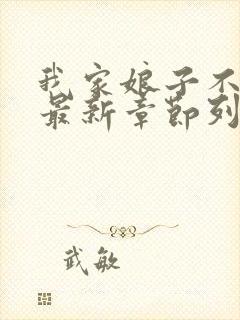 我家娘子不
最新章节列
武敏